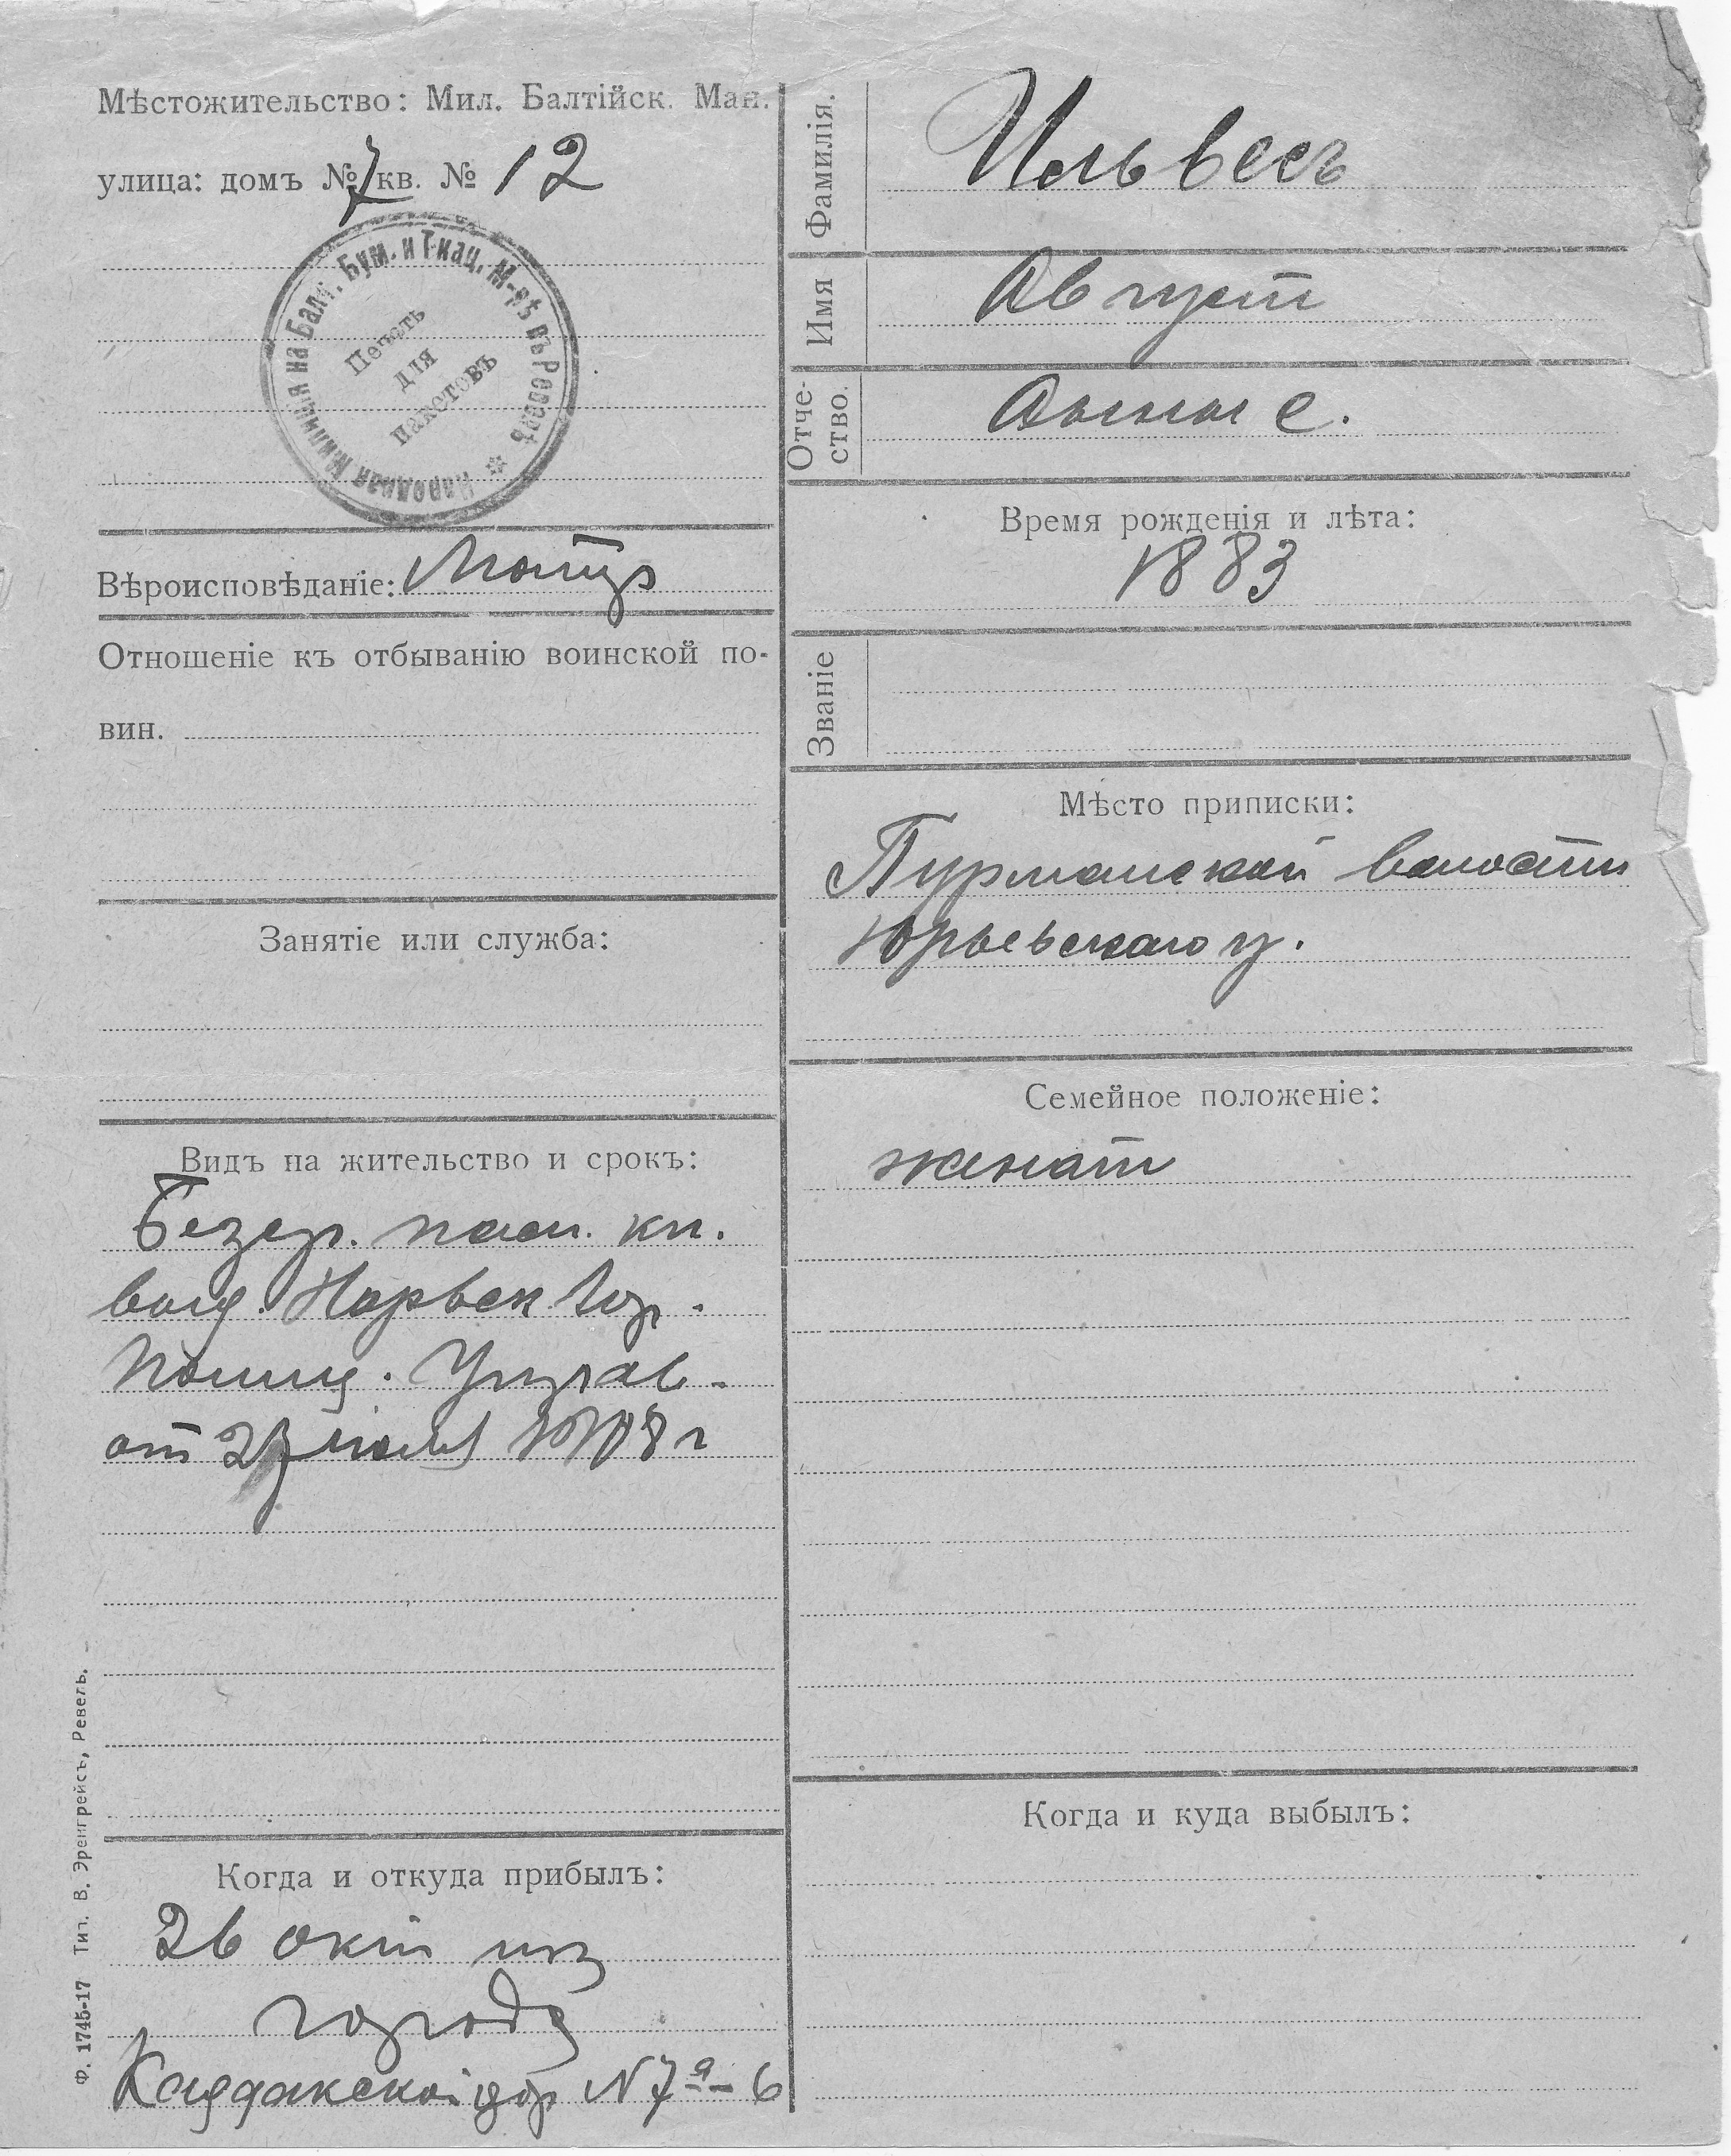 Мѣстожительство: Мил. Балтійск. Ман.
улица: домъ № 7 кв. № 12
Народная Милиція на Балт. Бум. и Ткац. М-рѣ въ Ревелѣ
Печать
для
пакетовъ
Вѣроисповѣданіе:
Отношеніе къ отбыванію воинской по-
вин.
Занятіе или служба:
Видъ на жительство и срокъ:
Безср. пасп. кн.
выд. Нарвск Гор.
Полиц. Управ.
от 27 июля 1908 г
Когда и откуда прибылъ:
26 окт из
города
дор N 7а - 6
Ф. 1745-17 Тип. В. Эренгрейсъ, Ревель.
Фамилія. Ильвесъ
Имя Август
Отче-
ство.
Время рожденія и лѣта:
1883
Званіе
Мѣсто приписки:
волости
Юрьевскаго у.
Семейное положеніе:
женат
Когда и куда выбылъ: